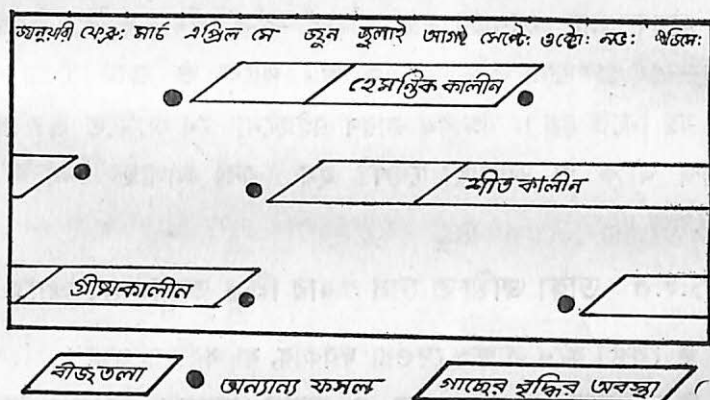 জানুয়ারী ফেব্রু: মার্চ এপ্রিল মে জুন জুলাই আগষ্ট সেপ্টে: অক্টো: নভে: ডিসে:
হেমন্তিক কালীন
শীত কালীন
গ্রীষ্মকালীন
বীজতলা অন্যান্য ফসল গাছের বৃদ্ধির অবস্থা